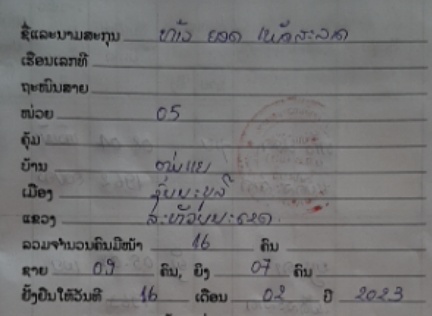 ຊື່ແລະນາມສະກຸນ ທ້າວ ຍອດ
ເຮືອນເລກທີ
ຖະໜົນສາຍ
ໜ່ວຍ 05
ຄຸ້ມ
ບ້ານ
ເມືອງ
ແຂວງ ສະຫວັນນະເຂດ
ລວມຈຳນວນຄົນມີໜ້າ 16 ຄົນ
ຊາຍ 09 ຄົນ, ຍິງ 07 ຄົນ
ຢັ້ງຢືນໃຫ້ວັນທີ 16 ເດືອນ 02 ປີ 2023